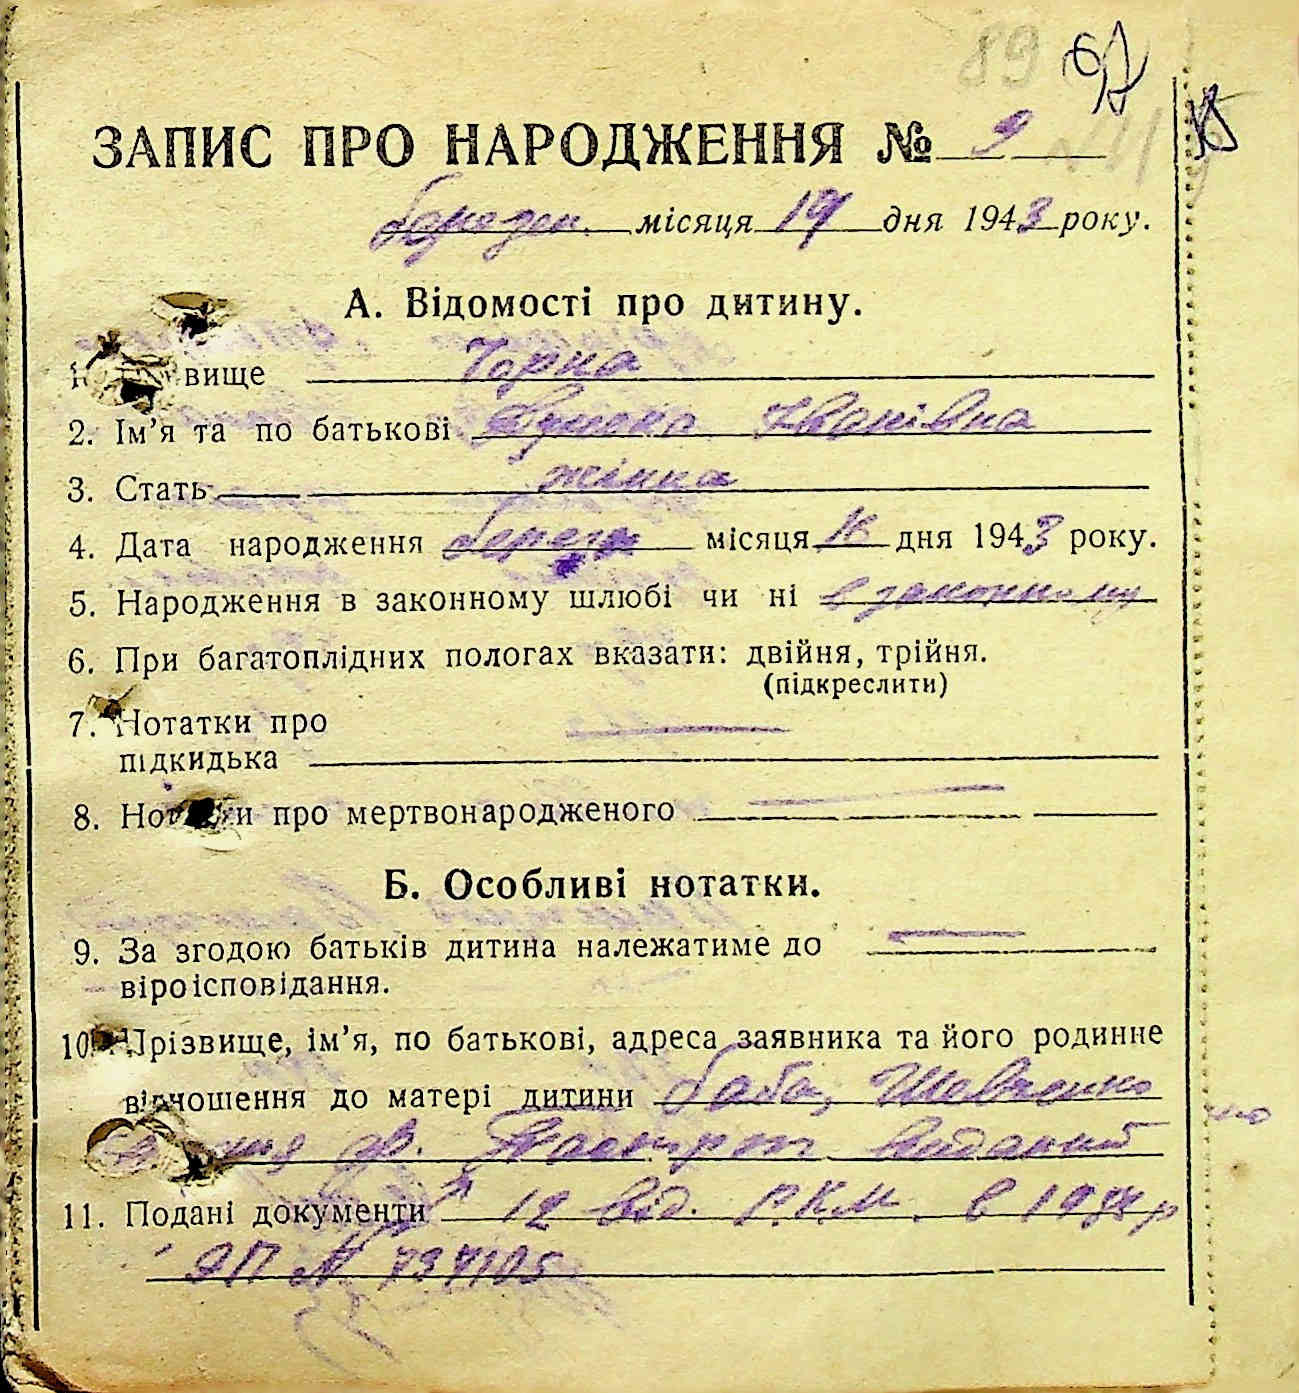 89
ЗАПИС ПРО НАРОДЖЕННЯ № 9
місяця 19 дня 1943 року.
А. Відомості про дитину.
вище Чорна
2. Ім'я та по батькові Іванівна
3. Стать жінка
4. Дата народження місяця дня 1943 року.
5. Народження в законному шлюбі чи ні в законному
6. При багатоплідних пологах вказати: двійня, трійня.
(підкреслити)
7. Нотатки про
підкидька
8. Нотатки про мертвонародженого
Б. Особливі нотатки.
9. За згодою батьків дитина належатиме до
віроісповідання.
10. Прізвище, ім'я, по батькові, адреса заявника та його родинне
відношення до матері дитини баба, Шевченко
Паспорт виданий
11. Подані документи 12 від. Р.К.М. в
ЯП №